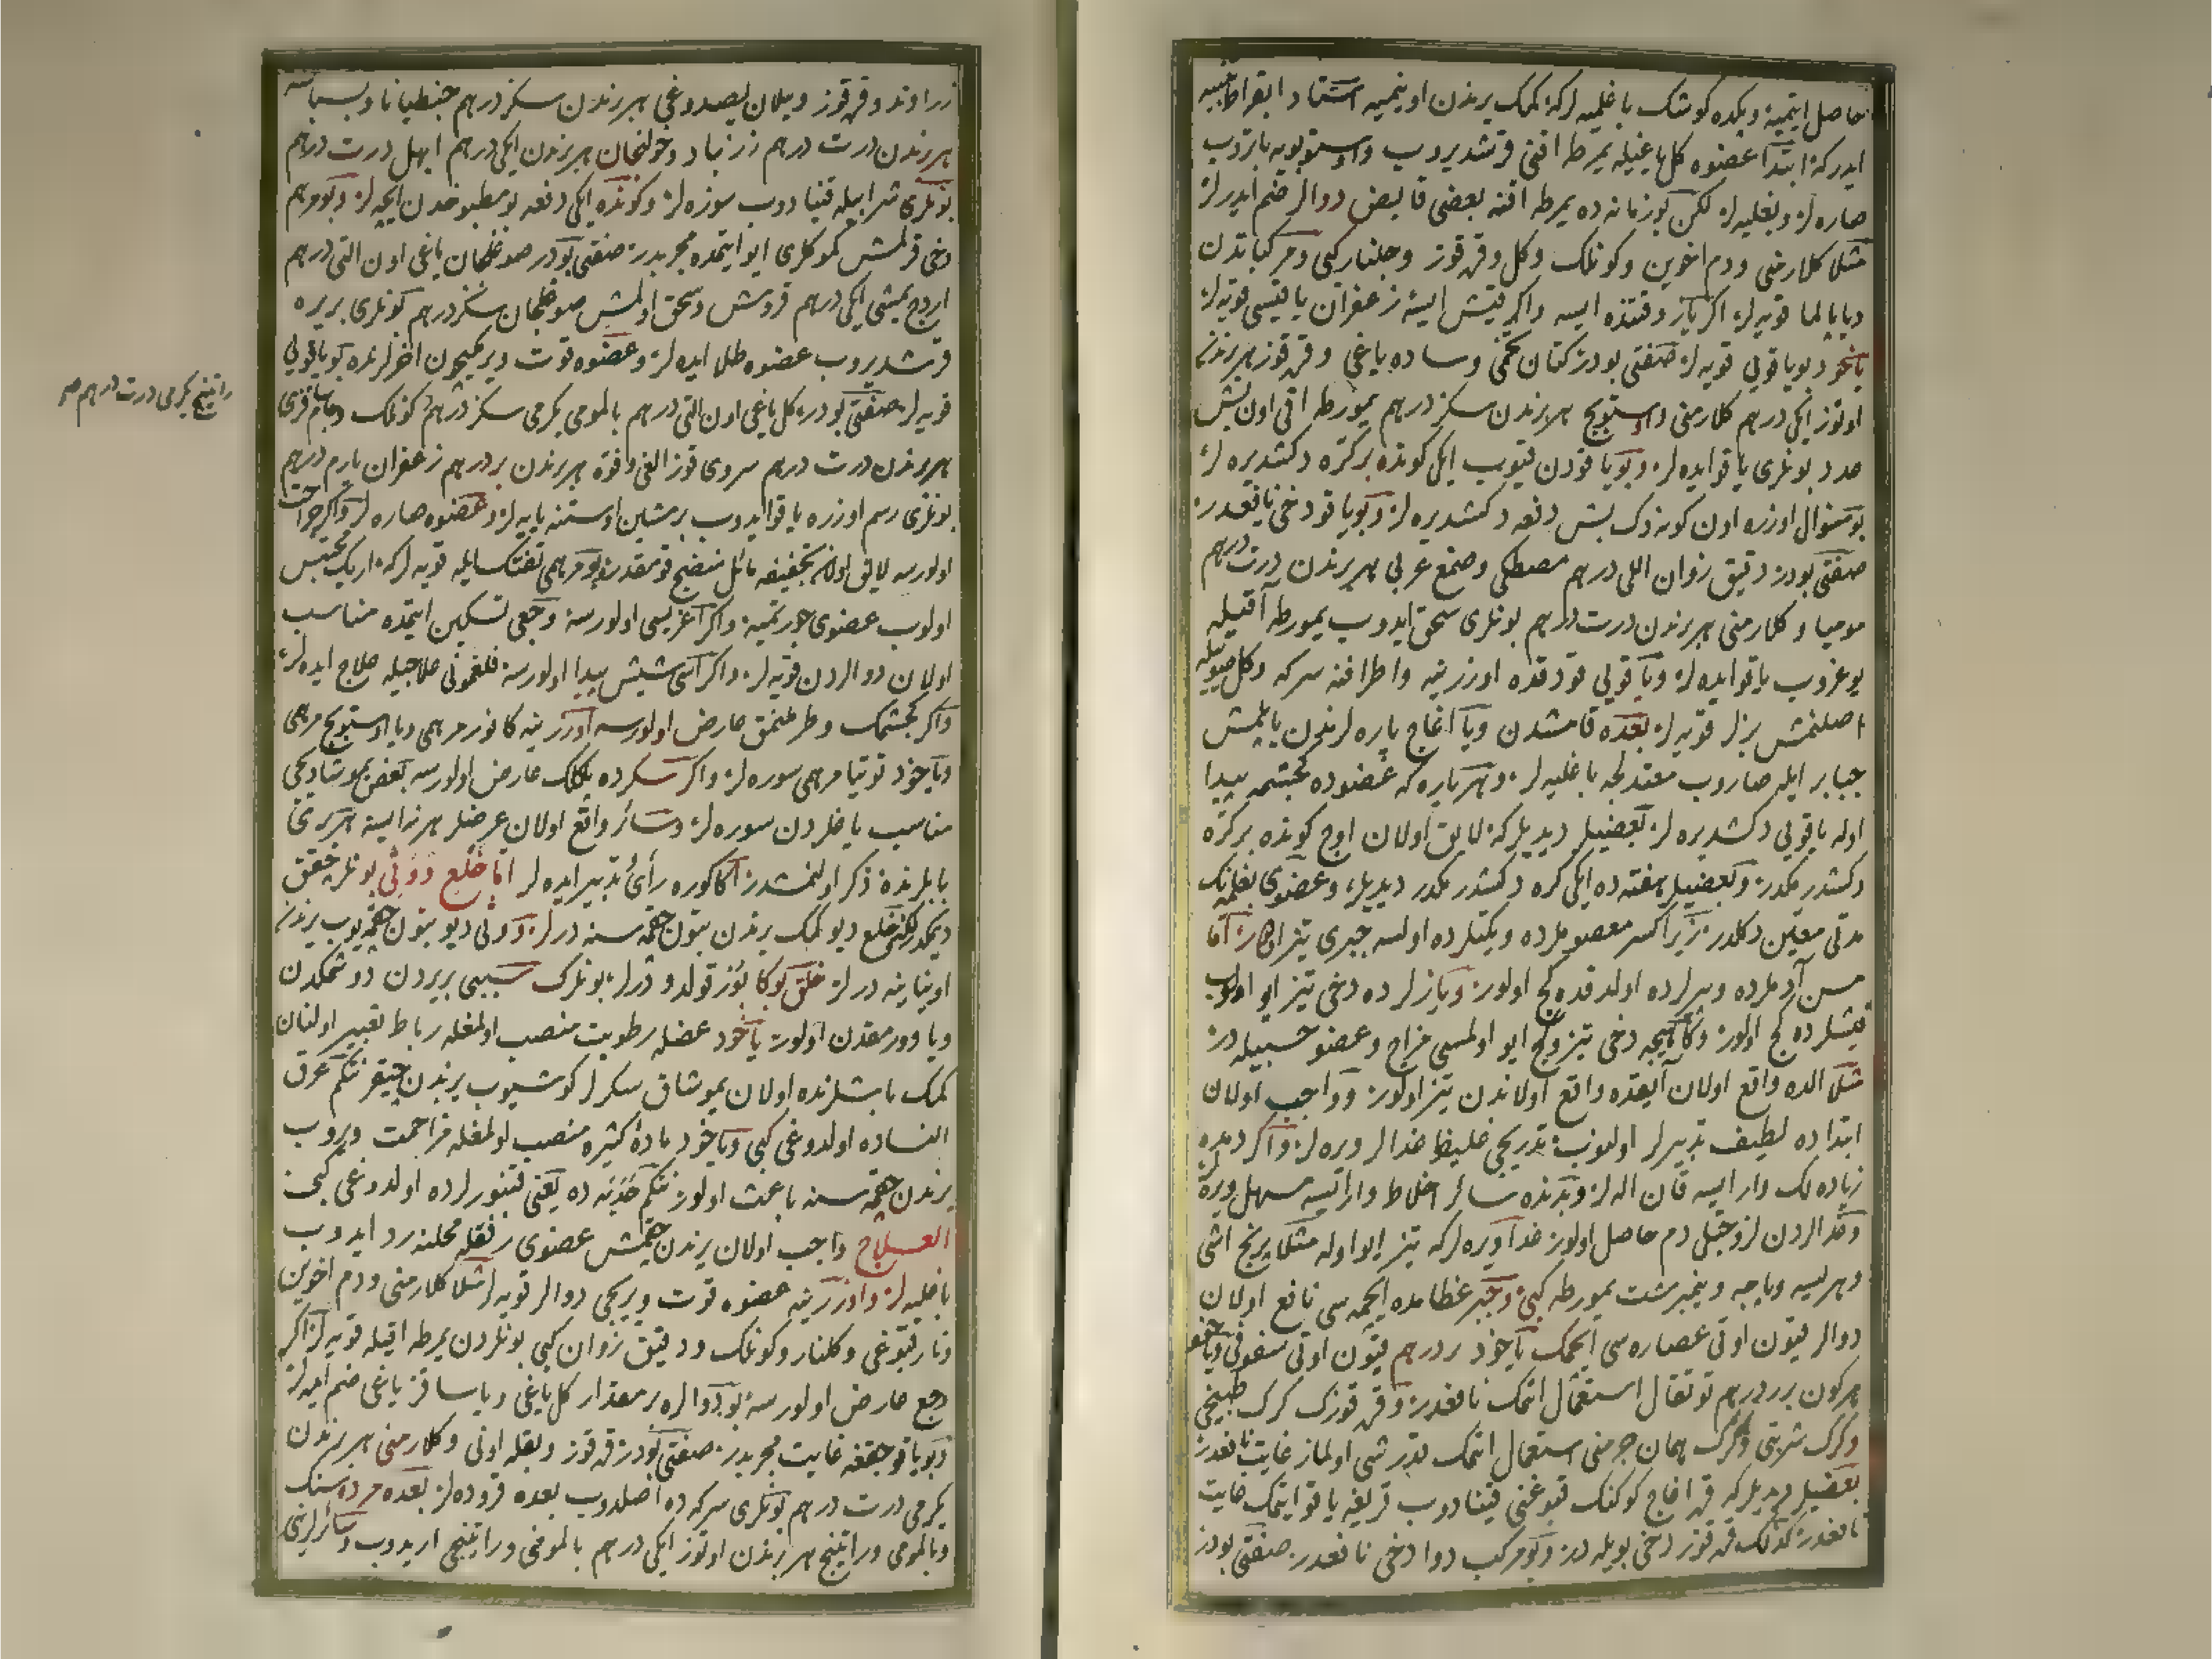 حاصل ایتمیه و بکده کوشک باغلمیه لرکه کمک یرندن اوینمیه استاد ابقراط
ایدرکه ابتدا عضوه کل یاغیله یمرطه اقنی قرشدیروب و اوستوبویه باتروب
صاره لر و بغلیه لر لکن بو زمانه ده یمرطه اقنه بعضی قابض دوالر ضم ایدرلر
مثلا کلارمنی و دم اخوین و کونلک و کل و قره قوز و جلنار کبی و مرکباتدن
قویه لر اکر یاز وقتنده ایسه و اکر قیش ایسه زعفران یاقیسی قویه لر
یاخود بو یاقویی قویه لر صفتی بودر کتان تخمی و ساده یاغی و قره قوز هر برندن
اوتوز ایکی درهم کلارمنی و اوستوبج هر برندن سکز درهم یمورطه اقی اون بش
عدد بونلری یاقو ایده لر و بو یاقودن قیوب ایکی کونده بر کره دکشدیره لر
بو منوال اوزره اون کونه دک بش دفعه دکشدیره لر و بو یاقو دخی نافعدر
صفتی بودر دقیق زوان اللی درهم مصطکی و صمغ عربی هر برندن درت درهم
مومیا و کلارمنی هر برندن درت درهم بونلری سحق ایدوب یمورطه آقیله
یوغروب یاقو ایده لر و یاقویی قودقده اوزرینه و اطرافنه سرکه و کل صوییله
اصلنمش بزلر قویه لر بعده قامشدن ویا اغاج پاره لرندن یاپلمش
جبایر ایله صاروب معتدلجه باغلیه لر و هر بار که عضوده کجشمه پیدا
اوله یاقویی دکشدیره لر بعضیلر دیدیلرکه لایق اولان اوچ کونده بر کره
دکشدرمکدر و بعضیلر هفته ده ایکی کره دکشدرمکدر دیدیلر و عضوی بغلمنک
مدتی معین دکلدر زیرا اکسر معصوملرده و یکتلرده اولسه جبری تیز اولور اما
مسن آدملرده و پیرلرده اولدقده کج اولور و یازلرده دخی تیز ایو اولوب
قیشلرده کج اولور دخی تیز و کج ایو اولمسی مزاج و عضو حسبیله در
مثلا الده واقع اولان آیقده واقع اولاندن تیز اولور و واجب اولان
ابتداده لطیف تدبیرلر اولنوب تدریجی غلیظ غدالر ویره لر و اکر دمده
زیاده لک وار ایسه قان اله لر و بدنده سائر اخلاط وار ایسه مسهل ویره لر
و غدالردن لزوجتلی دم حاصل اولور غدا ویره لرکه تیز ایو اوله مثلا پرنج اشی
و هریسه و پاچه و نیمبرشت یمورطه کبی و جبر عظامده ایچمه سی نافع اولان
دوالر قیون اوتی عصاره سی ایچمک یاخود بر درهم قیون اوتی سفوفی
هر کون بر درهم توتقال استعمال اتمک نافعدر و قره قوزک کرک طبیخی
و کرک شربتی و کرک همان جرمنی استعمال اتمک بدر شی اولماز غایت نافعدر
بعضیلر دیدیلرکه قره اغاج کوکنک قبوغنی قینادوب یاقو ایتمک غایت
نافعدر کذلک قره قوز دخی بویله در و بو مرکب دوا دخی نافعدر صفتی بودر
زراوند و قره قوز و ییلان یصدوغی هر برندن سکز درهم جنطیانا و بسباسه
هر برندن درت درهم زرنباد و خولنجان هر برندن ایکی درهم ابهل درت درهم
بونلری شرابیله قینادوب سوزه لر و کونده ایکی دفعه بو مطبوخدن ایچه لر و بو مرهم
دخی قرلمش کموکلری ایو ایتمده مجربدر صفتی بودر صوغلجان یاغی اون التی درهم
اردج یمشی ایکی درهم قرومش و سحق اولمش صوغلجان سکز درهم بونلری بر یره
قرشدیروب عضوه طلا ایده لر و عضوه قوت ویرمکیچون اخرلرنده بو یاقویی
قویه لر صفتی بودر کل یاغی اون التی درهم بالمومی یکرمی سکز درهم کونلک
هر برندن درت درهم سروی قوزالغی و فوه هر برندن بر درهم زعفران یارم درهم
بونلری رسم اوزره یاقو ایدوب بر مشین اوستنه یایه لر و عضوه صاره لر و اکر جراحت
اولورسه لایق اولان تجفیفه مائل منضج قومقدر بو مرهمی تفتک ایله قویه لرکه ایرک محتبس
اولوب عضوی چورتمیه و اکر آغریسی اولورسه وجعی تسکین ایتمده مناسب
اولان دوالردن قویه لر و اکر آسی شیش پیدا اولورسه فلغمونی علاجیله علاج ایده لر
و اکر کجشمک و طرطنمق عارض اولورسه اوزرینه کافور مرهمی ویا اوستوبج مرهمی
ویاخود توتیا مرهمی سوره لر و اکر سکرده عارض اولورسه بعض یموشادیجی
مناسب یاغلردن سوره لر و سائر واقع اولان عرضلر هر نه ایسه هر بری
بابلرنده ذکر اولنمشدر آکا کوره رأی تدبیر ایده لر اما خلع و وثی بونلر
دیمکدر لکن خلع دیو کمک یرندن بتون چقمه سنه درلر و وثی دیو بتون چقمیوب یرندن
اوینایینه درلر خلق بوکا بوز قولدو درلر بونلرک سببی بر یردن دوشمکدن
ویا وورمقدن اولور یاخود عضله رطوبت منصب اولمغله رباط تعبیر اولنان
کمک باشلرنده اولان یموشاق سکرلر کوشیوب یرندن چیقر نتکم عرق
النساده اولدوغی کبی ویاخود ماده کثیره منصب اولمغله مزاحمت ویروب
یرندن چقمه سنه باعث اولور نتکم حدبه ده یعنی قنبورلرده اولدوغی کبی
العلاج واجب اولان یرندن چقمش عضوی رفقله محلنه رد ایدوب
باغلیه لر و اوزرینه عضوه قوت ویریجی دوالر قویه لر مثلا کلارمنی و دم اخوین
و نار قبوغی و کلنار و کونلک و دقیق زوان کبی بونلردن یمرطه اقیله قویه لر اکر
وجع عارض اولورسه بو دوالره بر مقدار کل یاغی ویا ساقز یاغی ضم ایده لر
و بو یاقو چقغه غایت مجربدر صفتی بودر قره قوز و بقله اونی و کلارمنی هر برندن
یکرمی درت درهم بونلری سرکه ده اصلدوب بعده قروده لر بعده مرده سنک
و بالمومی و راتینج هر برندن اوتوز ایکی درهم بالمومنی و راتینجی اریدوب و سائرلرینی
راتینج یکرمی درت درهم